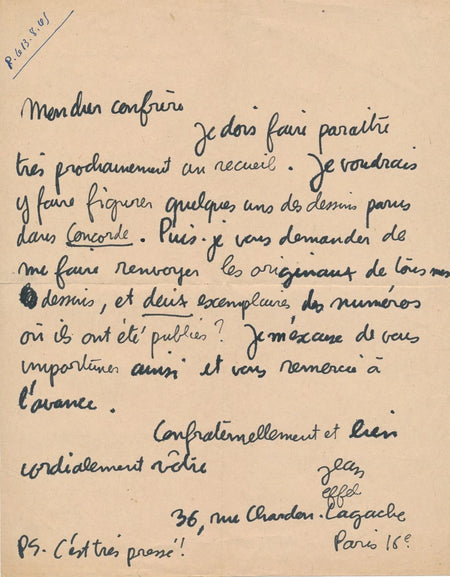 R. le 13.8.45
Mon cher confrère
Je dois faire paraître
très prochainement un recueil. Je voudrais
y faire figurer quelques uns des dessins parus
dans Concorde. Puis-je vous demander de
me faire renvoyer les originaux de tous mes
dessins, et deux exemplaires des numéros
où ils ont été publiés? Je m'excuse de vous
importuner ainsi et vous remercie à
l'avance.
Confraternellement et bien
cordialement vôtre
Jean
effel
36, rue Chardon-Lagache
Paris 16e
PS. C'est très pressé!